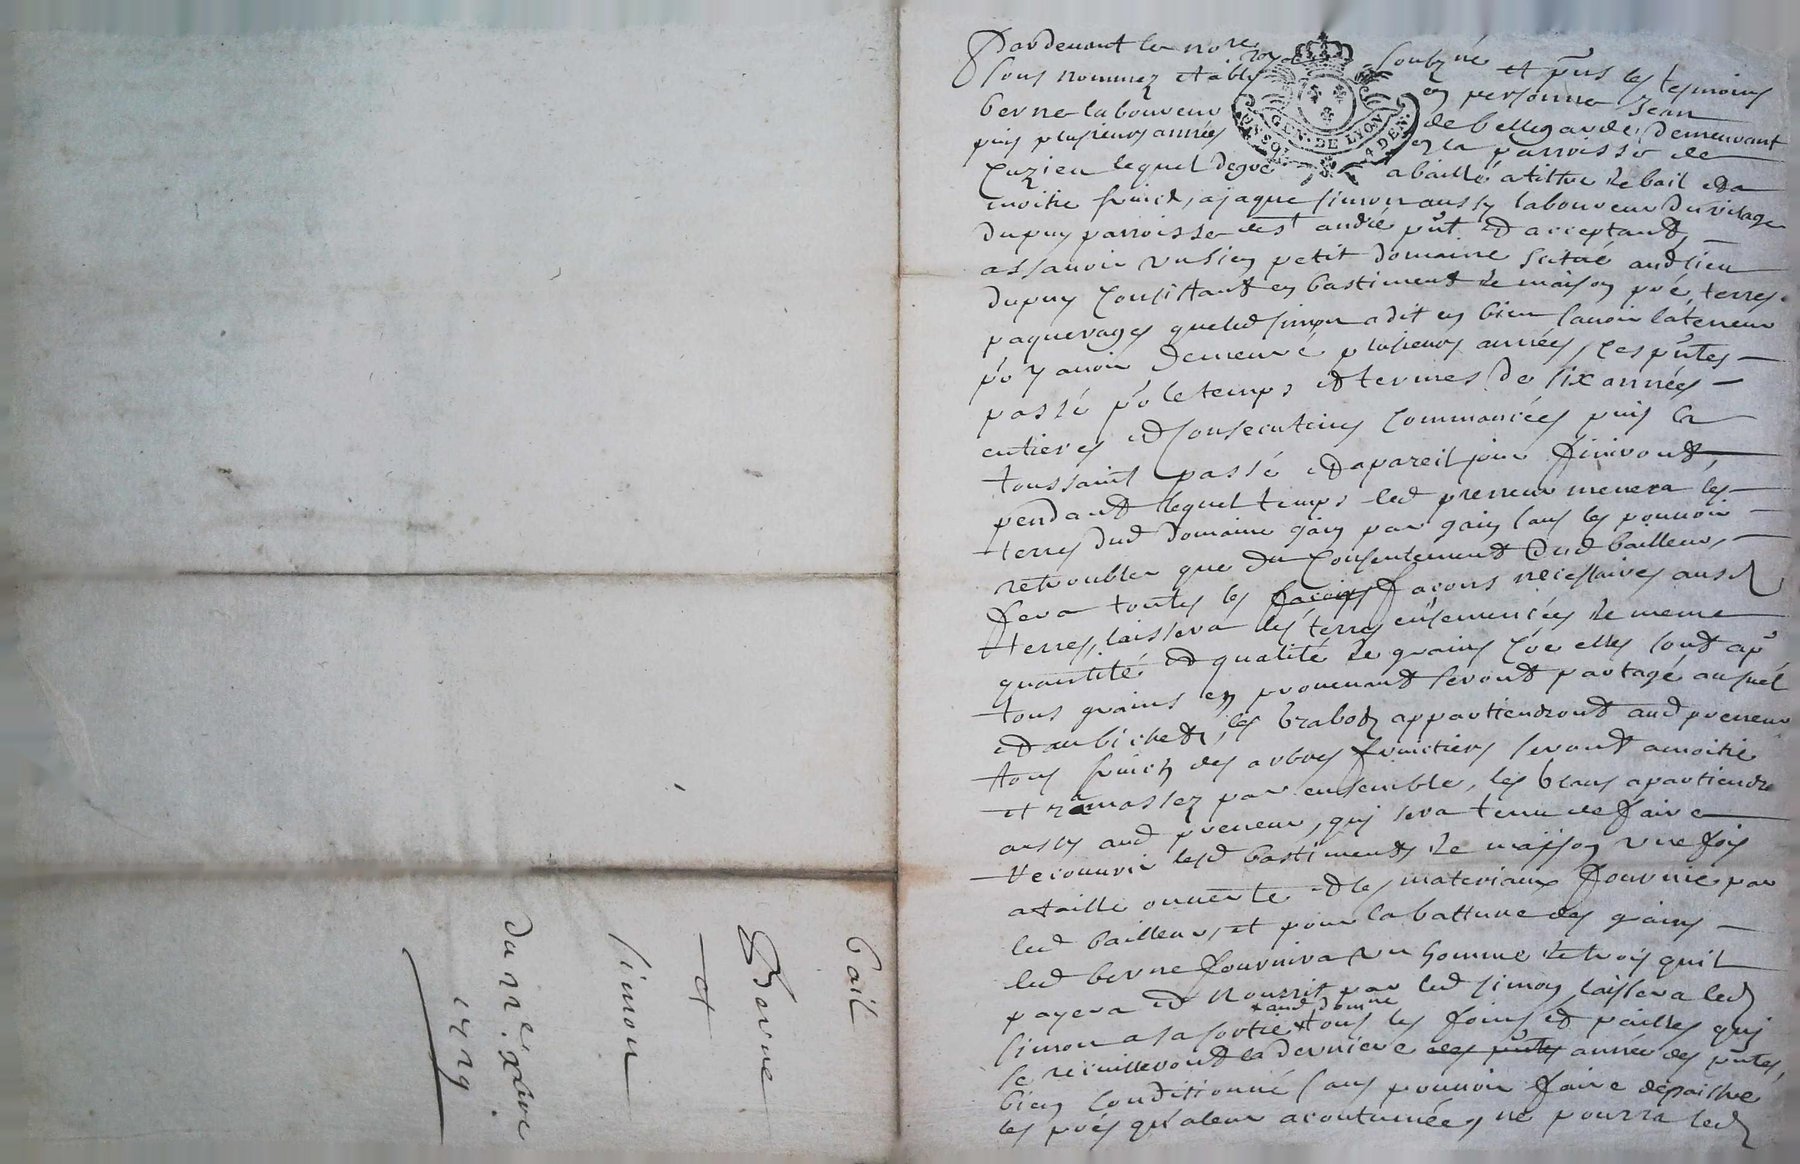 Pardevant le no.re roy.l soubzné et pñs les tesmoins
sous nommez etably en personne Jean
berne laboureur de bellegarde, demeurant
puis plusieurs années en la parroisse de
Cuzieu lequel de gré a baillé a tiltre de bail et a
moitié fruict, a jaque simon aussy laboureur du vilage
du puy parroisse de s.t andré pñt et acceptant,
assavoir un sien petit domaine scitué aud lieu
du puy consistant en bastiment de maison pré, terres
paquerages que led simon a dit en bien savoir la teneur
po.r y avoir demeuré plusieurs années, ces pñtes
passé po.r le temps et termes de six années
entieres et consecutives commancées puis la
toussaint passé et a pareil jour finiront,
pendant lequel temps led preneur menera les
terres dud domaine gain par gain sans les pouvoir
retroubler que du consentement dud bailleur,
fera toutes les façons façons necessaires ausd
terres, laissera les terres ensemencées de meme
quantité et qualité de grains que elles sont ap
tous grains en provenant seront partagé
et au bichet, les brabots appartiendront aud preneur
tous fruicts des arbres fruictiers seront a moitié
et ramassez par ensemble, les brans apartiendr
aussy aud preneur, qui sera tenu de faire
recouvrir lesd bastiments de maison une fois
a taille ouverte et les materiaux fournie par
led bailleur, et pour la batture des grains
led berne fournira un homme de trois quil
payera et nourrit par led simon, laissera led
simon a sa sortie + tous les foins et pailles qui
+ aud dom.ne
se recuilleront la derniere des pñtes année des pñtes,
bien conditionné sans pouvoir faire depaistre
les prés qu'a leur acoutumée, ne pourra led
GEN. DE LYON
UN SOL
4 DEN.
bail
Berne
et
simon
du
1729